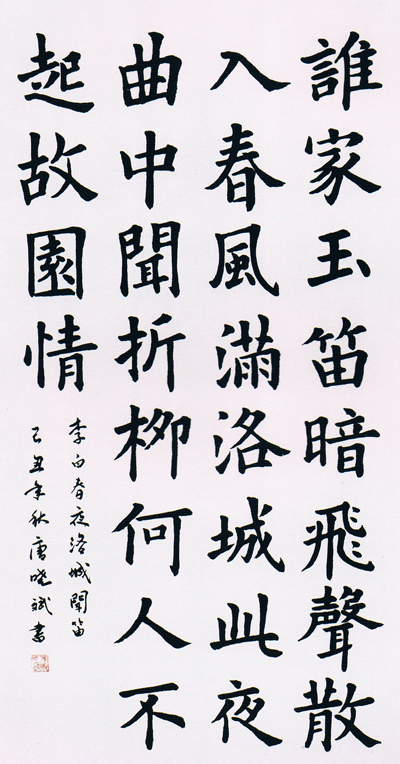 誰家玉笛暗飛聲散
入春風滿洛城此夜
曲中聞折柳何人不
起故園情
李白春夜洛城聞笛
己丑年秋唐曉斌書